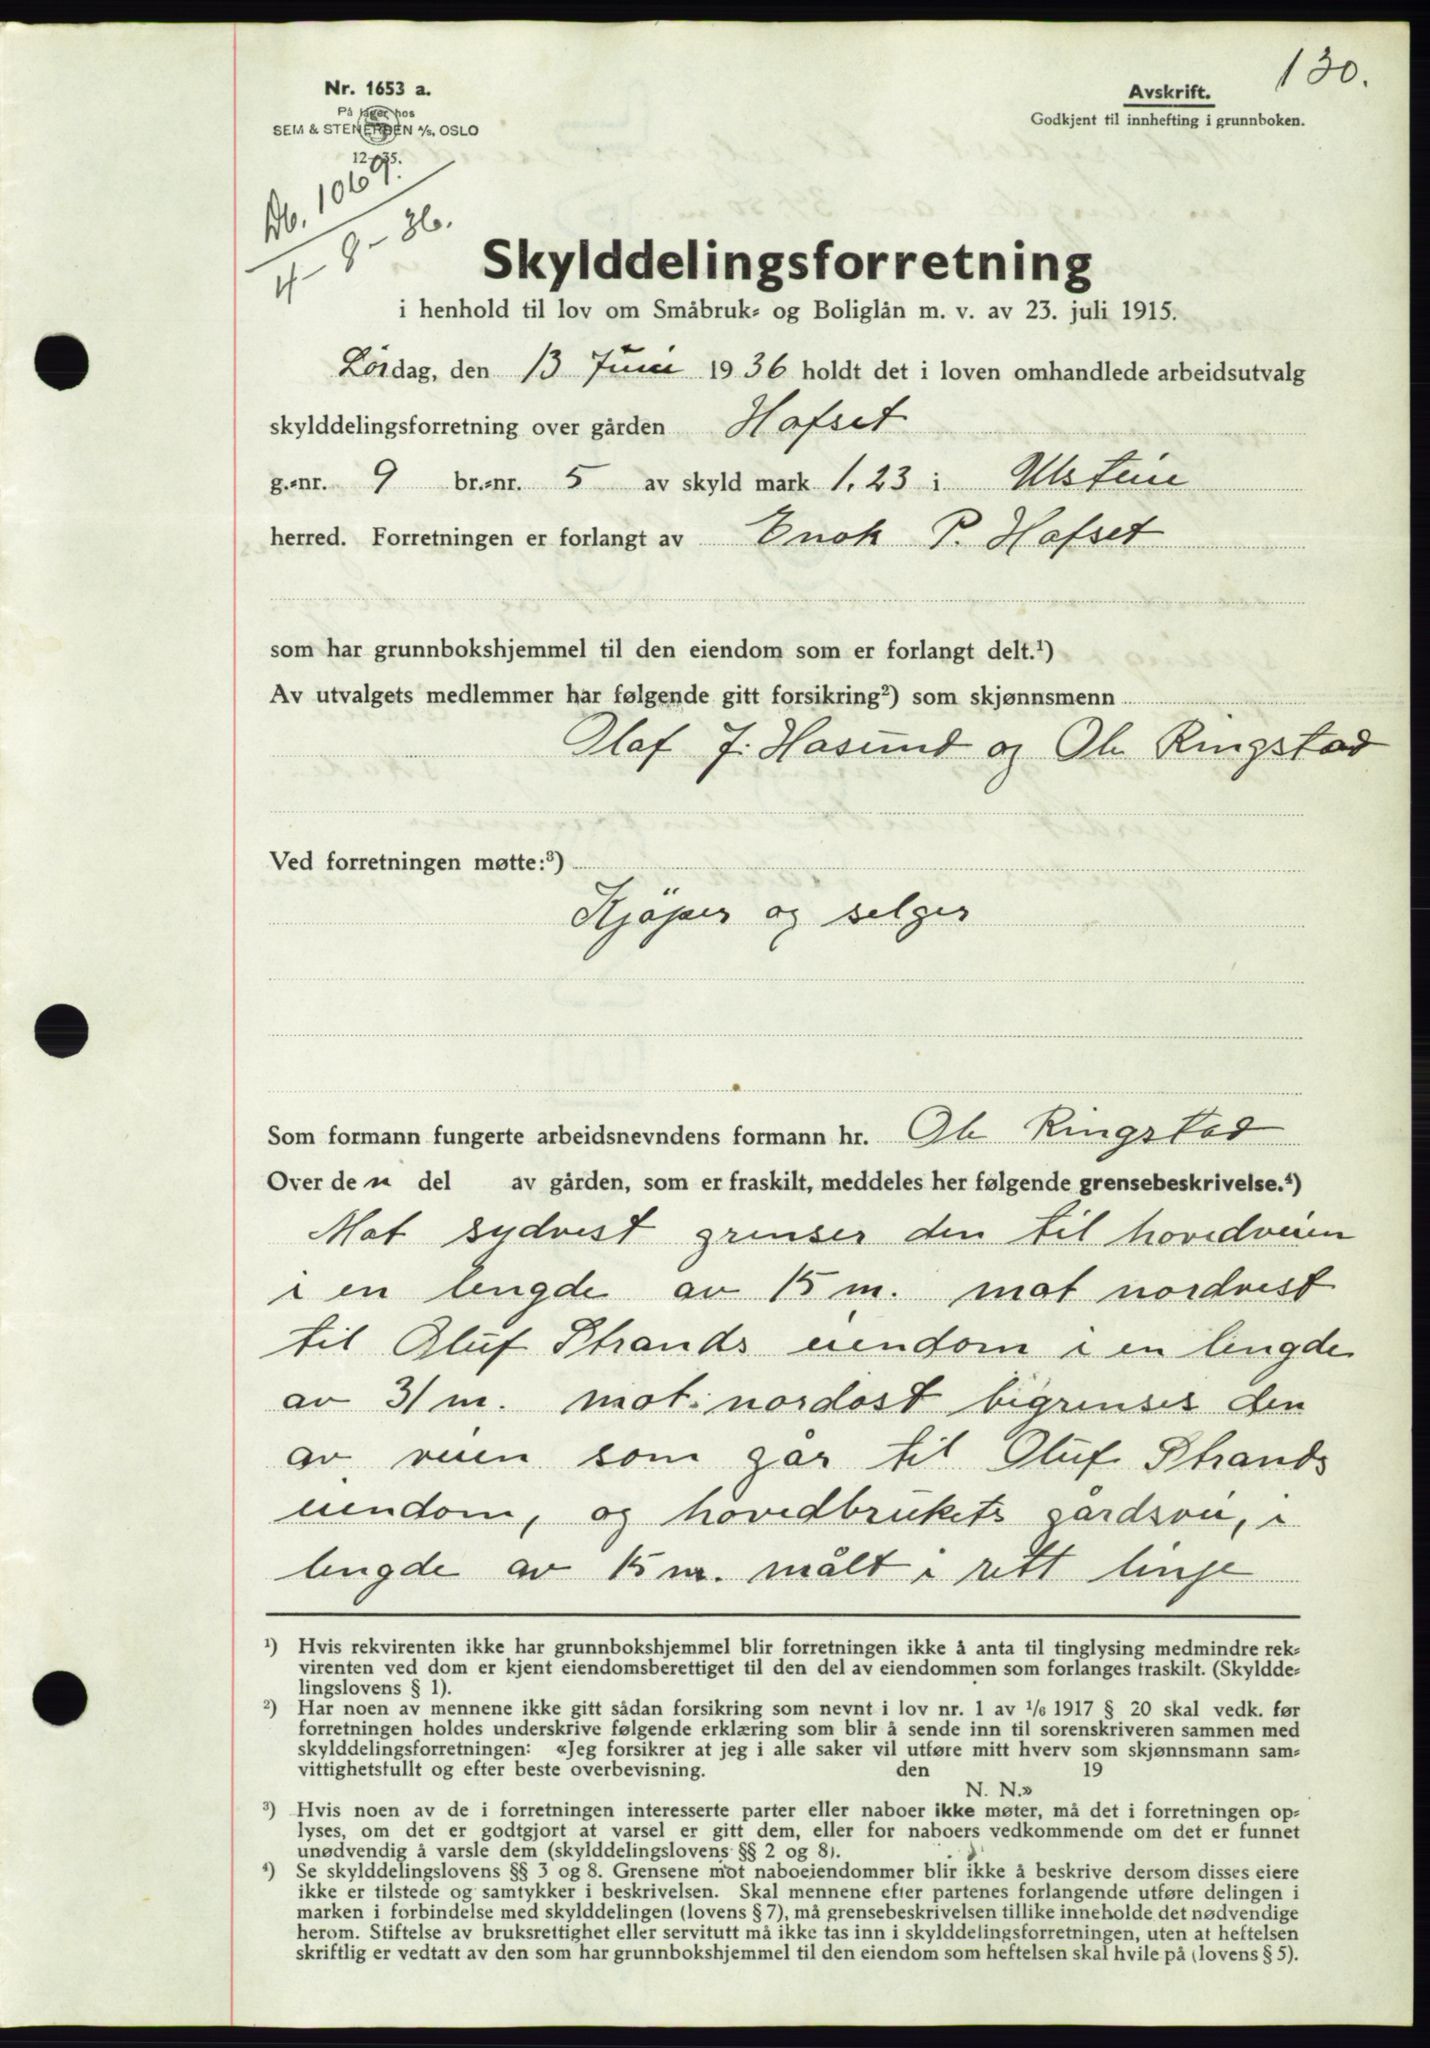 130.
Nr. 1653 a.
På lager hos
SEM & STENERSEN A/S, OSLO
12–35.
Avskrift.
Godkjent til innhefting i grunnboken.
Db. 1069.
4–8–36.
Skylddelingsforretning
i henhold til lov om Småbruk- og Boliglån m. v. av 23. juli 1915.
Lördag, den 13 Juni 1936 holdt det i loven omhandlede arbeidsutvalg
skylddelingsforretning over gården Hafset
g.-nr. 9 br.-nr. 5 av skyld mark 1,23 i Ulstein
herred. Forretningen er forlangt av Enok P. Hafset
som har grunnbokshjemmel til den eiendom som er forlangt delt.¹)
Av utvalgets medlemmer har følgende gitt forsikring²) som skjønnsmenn
Olaf J. Hasund og Ole Ringstad
Ved forretningen møtte:³)
Kjöper og selger
Som formann fungerte arbeidsnevndens formann hr. Ole Ringstad
Over den del av gården, som er fraskilt, meddeles her følgende grensebeskrivelse.⁴)
Mot sydvest grenser den til hovedveien
i en lengde av 15 m. mot nordvest
til Oluf Strands eiendom i en lengde
av 31 m. mot nordost begrenses den
av veien som går til Oluf Strands
eiendom, og hovedbrukets gårdsvei, i
lengde av 15 m. målt i rett linje
¹) Hvis rekvirenten ikke har grunnbokshjemmel blir forretningen ikke å anta til tinglysing medmindre rek-
virenten ved dom er kjent eiendomsberettiget til den del av eiendommen som forlanges fraskilt. (Skyldde-
lingslovens § 1).
²) Har noen av mennene ikke gitt sådan forsikring som nevnt i lov nr. 1 av 1/6 1917 § 20 skal vedk. før
forretningen holdes underskrive følgende erklæring som blir å sende inn til sorenskriveren sammen med
skylddelingsforretningen: «Jeg forsikrer at jeg i alle saker vil utføre mitt hverv som skjønnsmann sam-
vittighetsfullt og efter beste overbevisning. den 19
N. N.»
³) Hvis noen av de i forretningen interesserte parter eller naboer ikke møter, må det i forretningen op-
lyses, om det er godtgjort at varsel er gitt dem, eller for naboers vedkommende om det er funnet
unødvendig å varsle dem (skylddelingslovens §§ 2 og 8).
⁴) Se skylddelingslovens §§ 3 og 8. Grensene mot naboeiendommer blir ikke å beskrive dersom disses eiere
ikke er tilstede og samtykker i beskrivelsen. Skal mennene efter partenes forlangende utføre delingen i
marken i forbindelse med skylddelingen (lovens § 7), må grensebeskrivelsen tillike inneholde det nødvendige
herom. Stiftelse av bruksrettighet eller servitutt må ikke tas inn i skylddelingsforretningen, uten at heftelsen
skriftlig er vedtatt av den som har grunnbokshjemmel til den eiendom som heftelsen skal hvile på (lovens § 5).